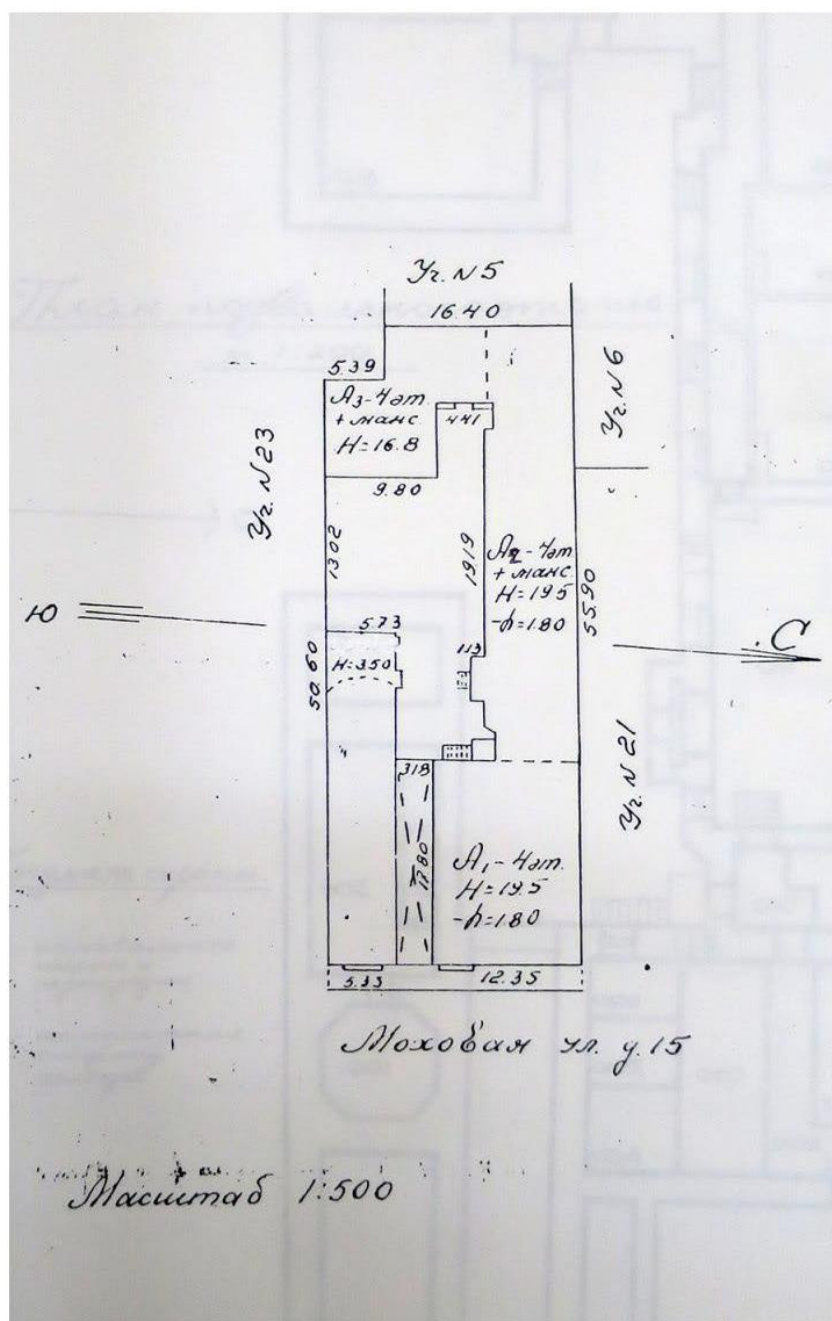 Уг. N 5
16.40
5.39
А3-4эт.
+ манс
Н=16.8
4.41
Уг. N 6
Уг. N 23
9.80
13.02
19.19
А2-4эт
+ манс
Н=19.5
-h=1.80
55.90
Ю
5.73
1.13
С
Н=3.50
50.60
Уг. N 21
3.18
А1-4эт.
Н=19.5
-h=1.80
5.33
12.35
Моховая ул. у. 15
Масштаб 1:500